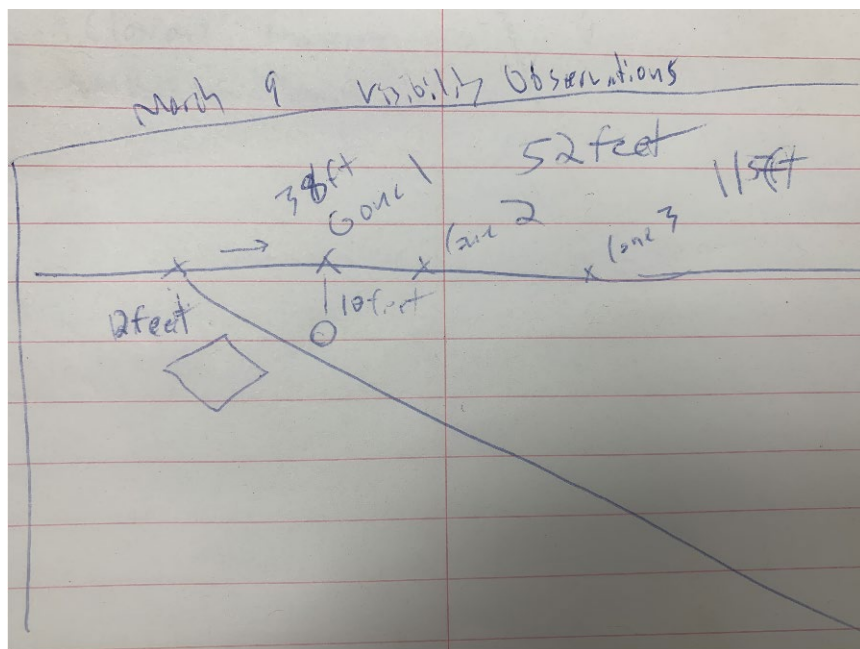 March 9 Visibility Observations
52 feet
115ft
38ft
Cone 1
Cone 2
Cone 3
12 feet
10 feet